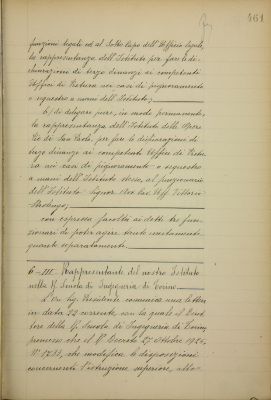 161
funzioni legali ed al Sotto Capo dell'Ufficio legale,
la rappresentanza dell'Istituto per fare le di-
chiarazioni di terzo dinanzi ai competenti
Uffici di Pretura nei casi di pignoramento
o sequestro a mani dell'Istituto;
b) di delegare pure, in modo permanente,
la rappresentanza dell'Istituto delle Opere
Pie di San Paolo, per le dichiarazioni di
terzo dinanzi ai competenti Uffici di Pretu-
ra nei casi di pignoramento o sequestro
a mani dell'Istituto stesso, al
dell'Istituto signor Cav. Uff. Vittorio
con espressa facoltà ai detti tre fun-
zionari di poter agire tanto unitamente
quanto separatamente.
6 - III. Rappresentante del nostro Istituto
nella R. Scuola di Ingegneria di Torino.
L'On. Sig. Presidente comunica una lettera
in data 22 corrente con la quale il Diret-
tore della R. Scuola di Ingegneria di Torino,
premesso che il R. Decreto 27 Ottobre 1926,
N° 1933, che modifica le disposizioni
concernenti l'istruzione superiore,